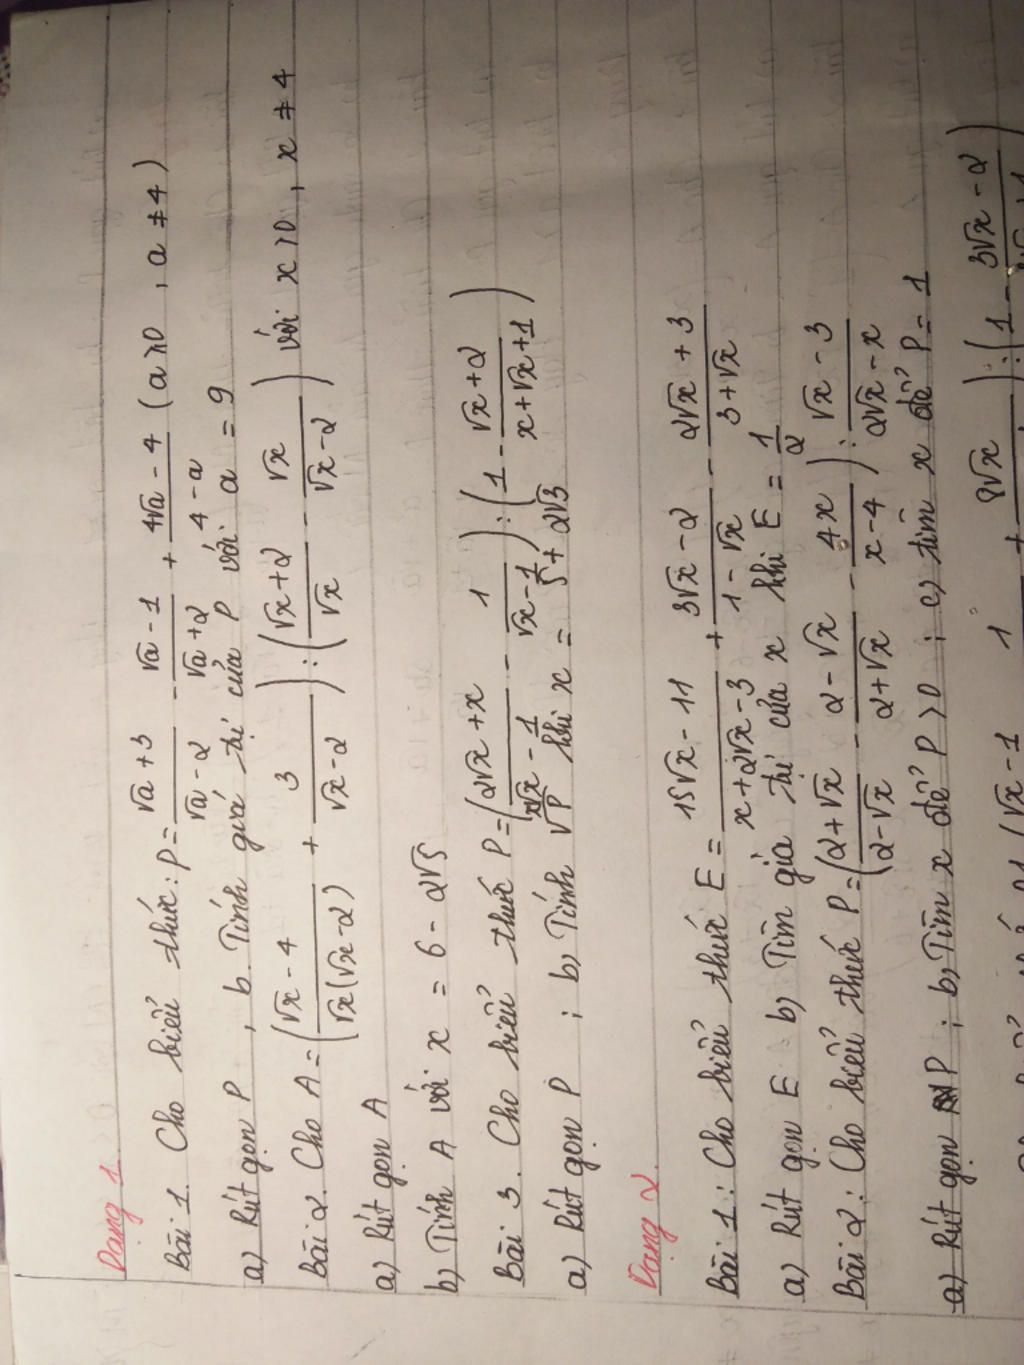 Dạng 1.
Bài 1. Cho biểu thức: P = (√a + 3)/(√a - 2) - (√a - 1)/(√a + 2) + (4√a - 4)/(4 - a) (a ≥ 0, a ≠ 4)
a) Rút gọn P, b. Tính giá trị của P với a = 9
Bài 2. Cho A = ((√x - 4)/(√x(√x - 2)) + 3/(√x - 2)) : ((√x + 2)/√x - √x/(√x - 2)) với x > 0, x ≠ 4
a) Rút gọn A
b) Tính A với x = 6 - 2√5
Bài 3. Cho biểu thức P = ((2√x + x)/(x√x - 1) - 1/(√x - 1)) : (1 - (√x + 2)/(x + √x + 1))
a) Rút gọn P ; b, Tính √P khi x = 5 + 2√3
Dạng 2.
Bài 1: Cho biểu thức E = (15√x - 11)/(x + 2√x - 3) + (3√x - 2)/(1 - √x) - (2√x + 3)/(3 + √x)
a) Rút gọn E b) Tìm giá trị của x khi E = 1/2
Bài 2: Cho biểu thức P = ((2 + √x)/(2 - √x) - (2 - √x)/(2 + √x) - 4x/(x - 4)) : (√x - 3)/(2√x - x)
a) Rút gọn P ; b, Tìm x để P > 0 ; c, tìm x để P = 1
(√x - 1 1 + 8√x ) : (1 - (3√x - 2)